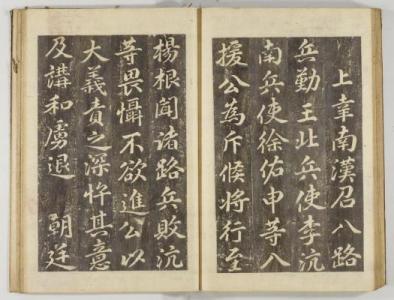 上幸南漢召八路
兵勤王此兵使李沆
南兵使徐佑申等八
援公為斥候将行至
楊根聞諸路兵敗沆
等畏懾不欲進公以
大義責之深忤其意
及講和虜退 朝廷